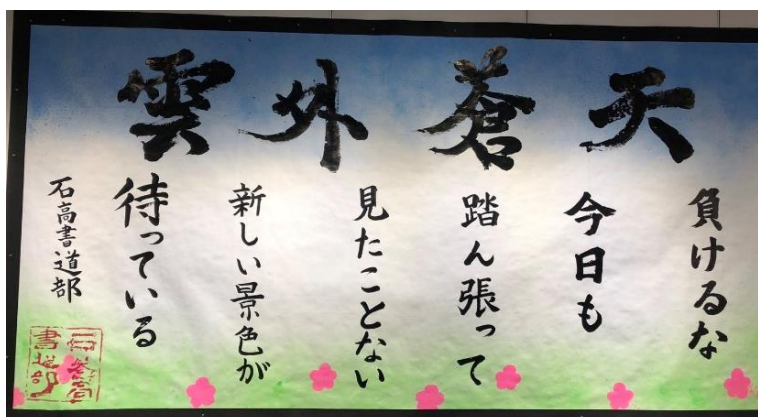 雲外蒼天
負けるな
今日も
踏ん張って
見たことない
新しい景色が
待っている
石高書道部
書道部